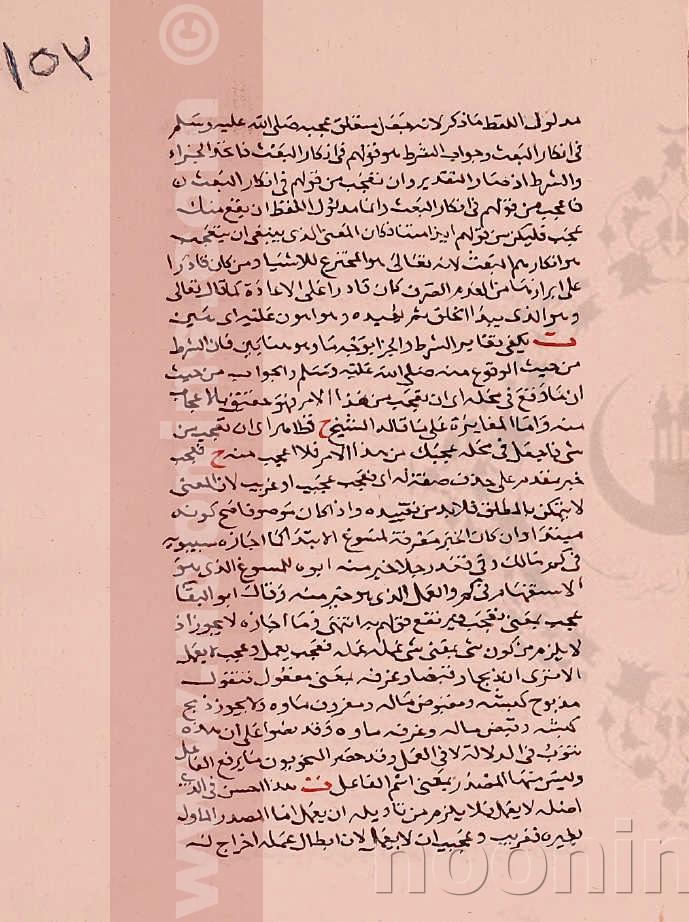 ١٥٢
مدلول اللفظ ما ذكر لانه جعل متعلق عجبه صلى الله عليه وسلم
فى انكار البعث وجواب الشرط هو قولهم فى انكار البعث فاتحد الجزاء
والشرط اذ صار التقدير وان تعجب من قولهم فى انكار البعث
فاعجب من قولهم فى انكار البعث وانما مدلول اللفظ ان يقع منك
عجب فليكن من قولهم ايذا متنا فكان المعنى الذى ينبغى ان يتعجب
هو انكارهم البعث لانه تعالى هو المخترع للاشيا ومن كان قادرا
على ابرازها من العدم الصرف كان قادرا على الاعادة كما قال تعالى
وهو الذى يبدا الخلق ثم يعيده وهو اهون عليه اى هين
ت يكفى تغاير الشرط والجزا بوجه ما وهو متباين فان الشرط
من حيث الوقوع منه صلى الله عليه وسلم والجواب من حيث
ان ما وقع فى محله اى ان تعجب من هذا الامر فهو حقيق بالاعجاب
منه واما المغايرة على ما قاله الشيخ ح فظاهر اى ان تعجب من
شى فاجعل فى محله عجبك من هذا الامر فلا اعجب منه ح فعجب
خبر مقدم على حذف صفته له اى فعجب عجيب او غريب لان المعنى
لا يتمكن بالمطلق فلا بد من تقييده واذا كان موصوفا صح كونه
مبتدا وان كان الخبر معرفة لمسوغ الابتدا كما اجازه سيبويه
فى كم مالك وفى قصد رجلا خير منه ابوه للمسوغ الذى هو
الاستفهام فى كم والعمل الذى هو خير منه وقال ابو البقا
عجب بمعنى معجب فيرتفع قولهم به انتهى وما اجازه لا يجوز اذ
لا يلزم من كون شى بمعنى شى عمله عمله فمعجب يعمل وعجب لا يعمل
الا ترى ان ذبحا وقبضا وغرفه بمعنى مفعول فتقول
مذبوح كبشه ومقبوض ماله ومغروف ماوه ولا يجوز ذبح
كبشه وقبض ماله وغرفه ماوه وقد نصوا على ان هذه
تنوب فى الدلالة لا فى العمل وقد حصر النحويون ما يرفع الفاعل
وليس منها المصدر بمعنى اسم الفاعل ت هذا الحسن فى
اصله لا يعمل فلا يلزم من تاويله ان يعمل اما المصدر الماول
بغيره فغريب وعجيب ان لا يعمل لان ابطال عمله اخراج له
www.noonin
noonin
©